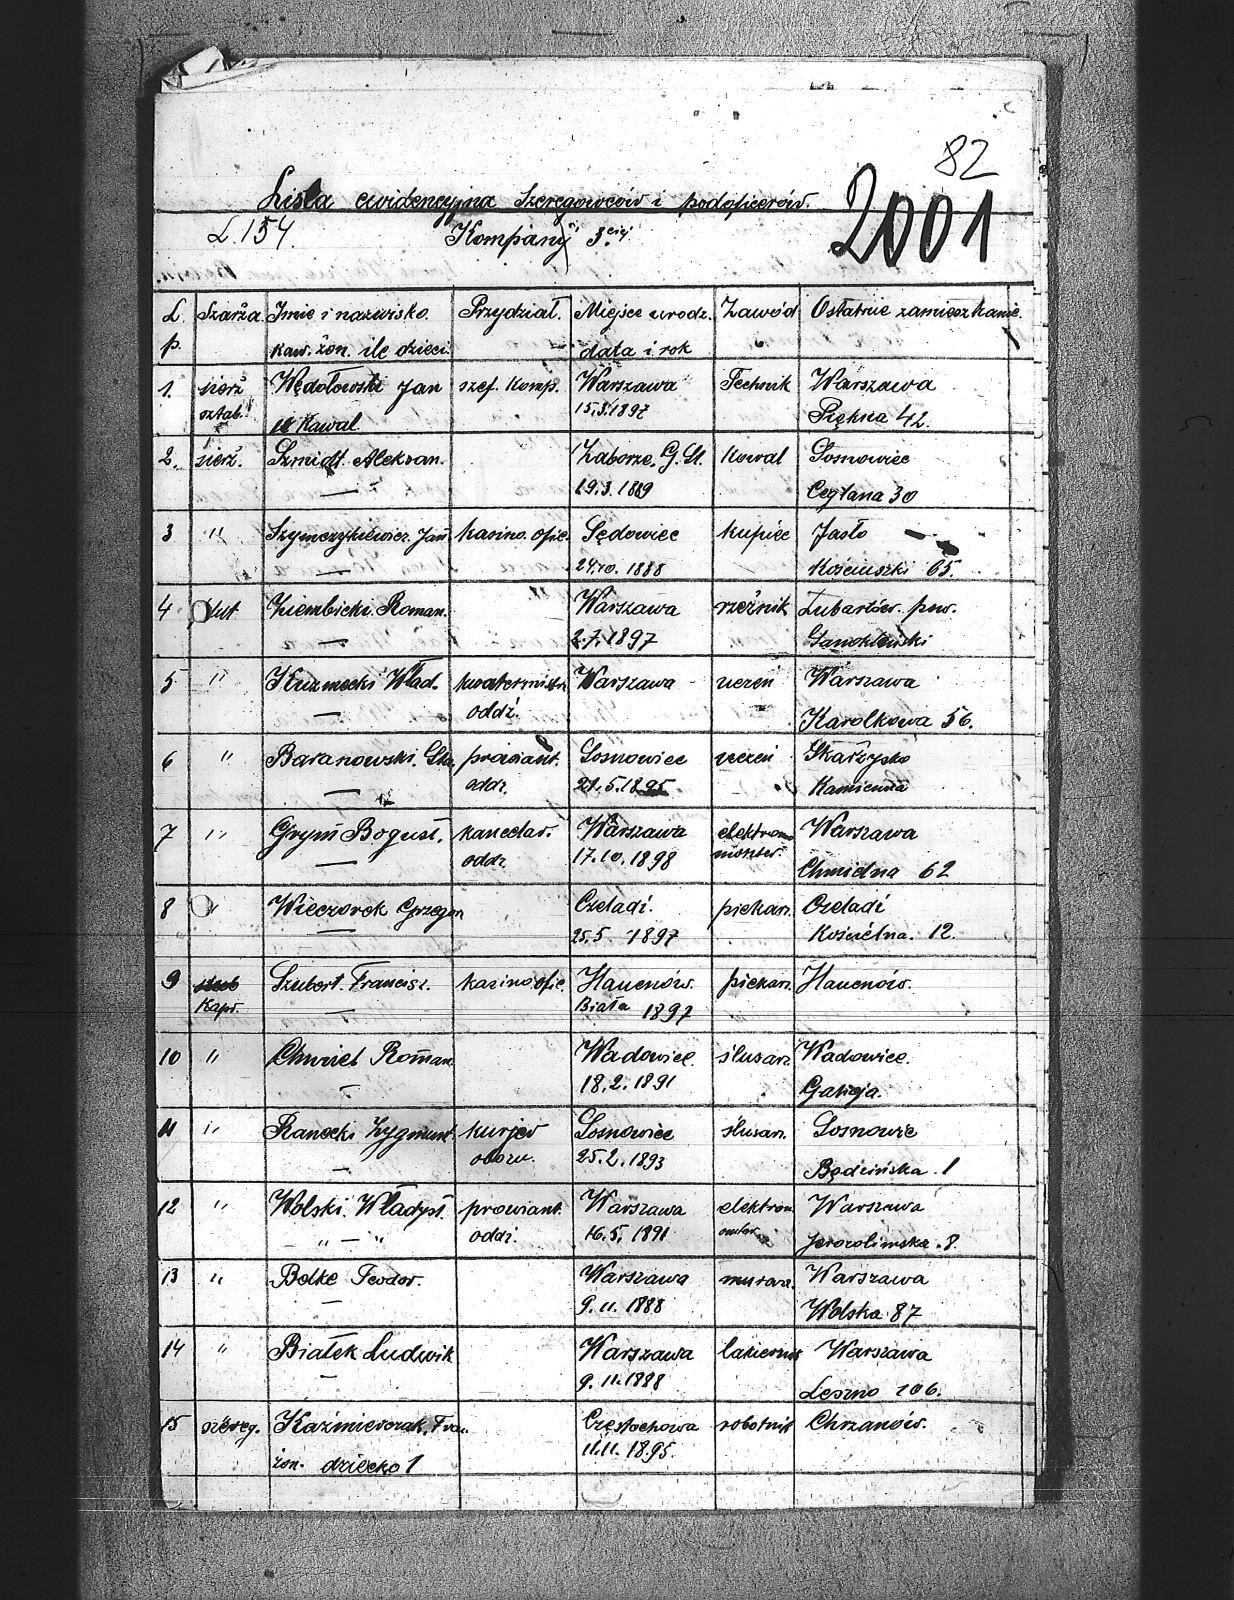 82
2001
Lista ewidencyjna Szeregowców i podoficerów.
L.154. Kompanji 3ciej
L. p. Szarża Imie i nazwisko. kaw. żon. ile dzieci. Przydział. Miejsce urodz. data i rok Zawód Ostatnie zamieszkanie.
1. sierż sztab. Wędołowski Jan szef. Komp. Warszawa Technik Warszawa
Kawal. 15.3.1897 Piękna 42.
2. sierż. Szmidt. Aleksan. Zaborze. G. Śl. Kowal Sosnowiec
— " — 19.3.1889 Ceglana 30
3 " Szymczykiewicz Jan kasino. ofic. Sędowiec kupiec Jasło
— 29.10.1888 Kościuszki 65.
4 plut Ziembicki. Roman. Warszawa rzeźnik Lubartów. pow.
— 2.7.1897
5 " Kuzmecki Wład. kwatermistrz Warszawa uczeń Warszawa
— oddź. Karolkowa 56.
6 " Baranowski. Sta. prowiant. Sosnowiec uczeń Skarżysko
— oddz. 21.5.1895 Kamienna
7 " Grym Bogusł. kancelar. Warszawa elektromonter. Warszawa
— oddz. 17.10.1898 Chmielna 62
8 " Wieczorek Grzegorz Czeladź. piekarz. Czeladź
— 25.5 1897 Kościelna. 12.
9 Kapr. Szubert. Francisz. kasino ofic. Hałcnów. piekarz. Hałcnów.
— Biała 1897
10 " Chwiet Roman. Wadowice. ślusarz. Wadowice.
— 18.2.1891 Galicja.
11 " Ranecki Zygmunt. kurjer Sosnowiec ślusarz. Sosnowie
— obozu. 25.2.1893 Będzińska. 1
12 " Wolski. Władysł. prowiant. Warszawa elektrom Warszawa
" — " oddz. 16.5.1891 Jerozolimska. 8.
13 " Belke Teodor. Warszawa murarz. Warszawa
— 9.11.1888 Wolska 87
14 " Białek Ludwik Warszawa lakiernik Warszawa
— 9.11.1888 Leszno 106.
15 szereg. Kaźmierczak. Fran. Częstochowa robotnik Chrzanów.
żon. dziecko 1 11.11.1895.